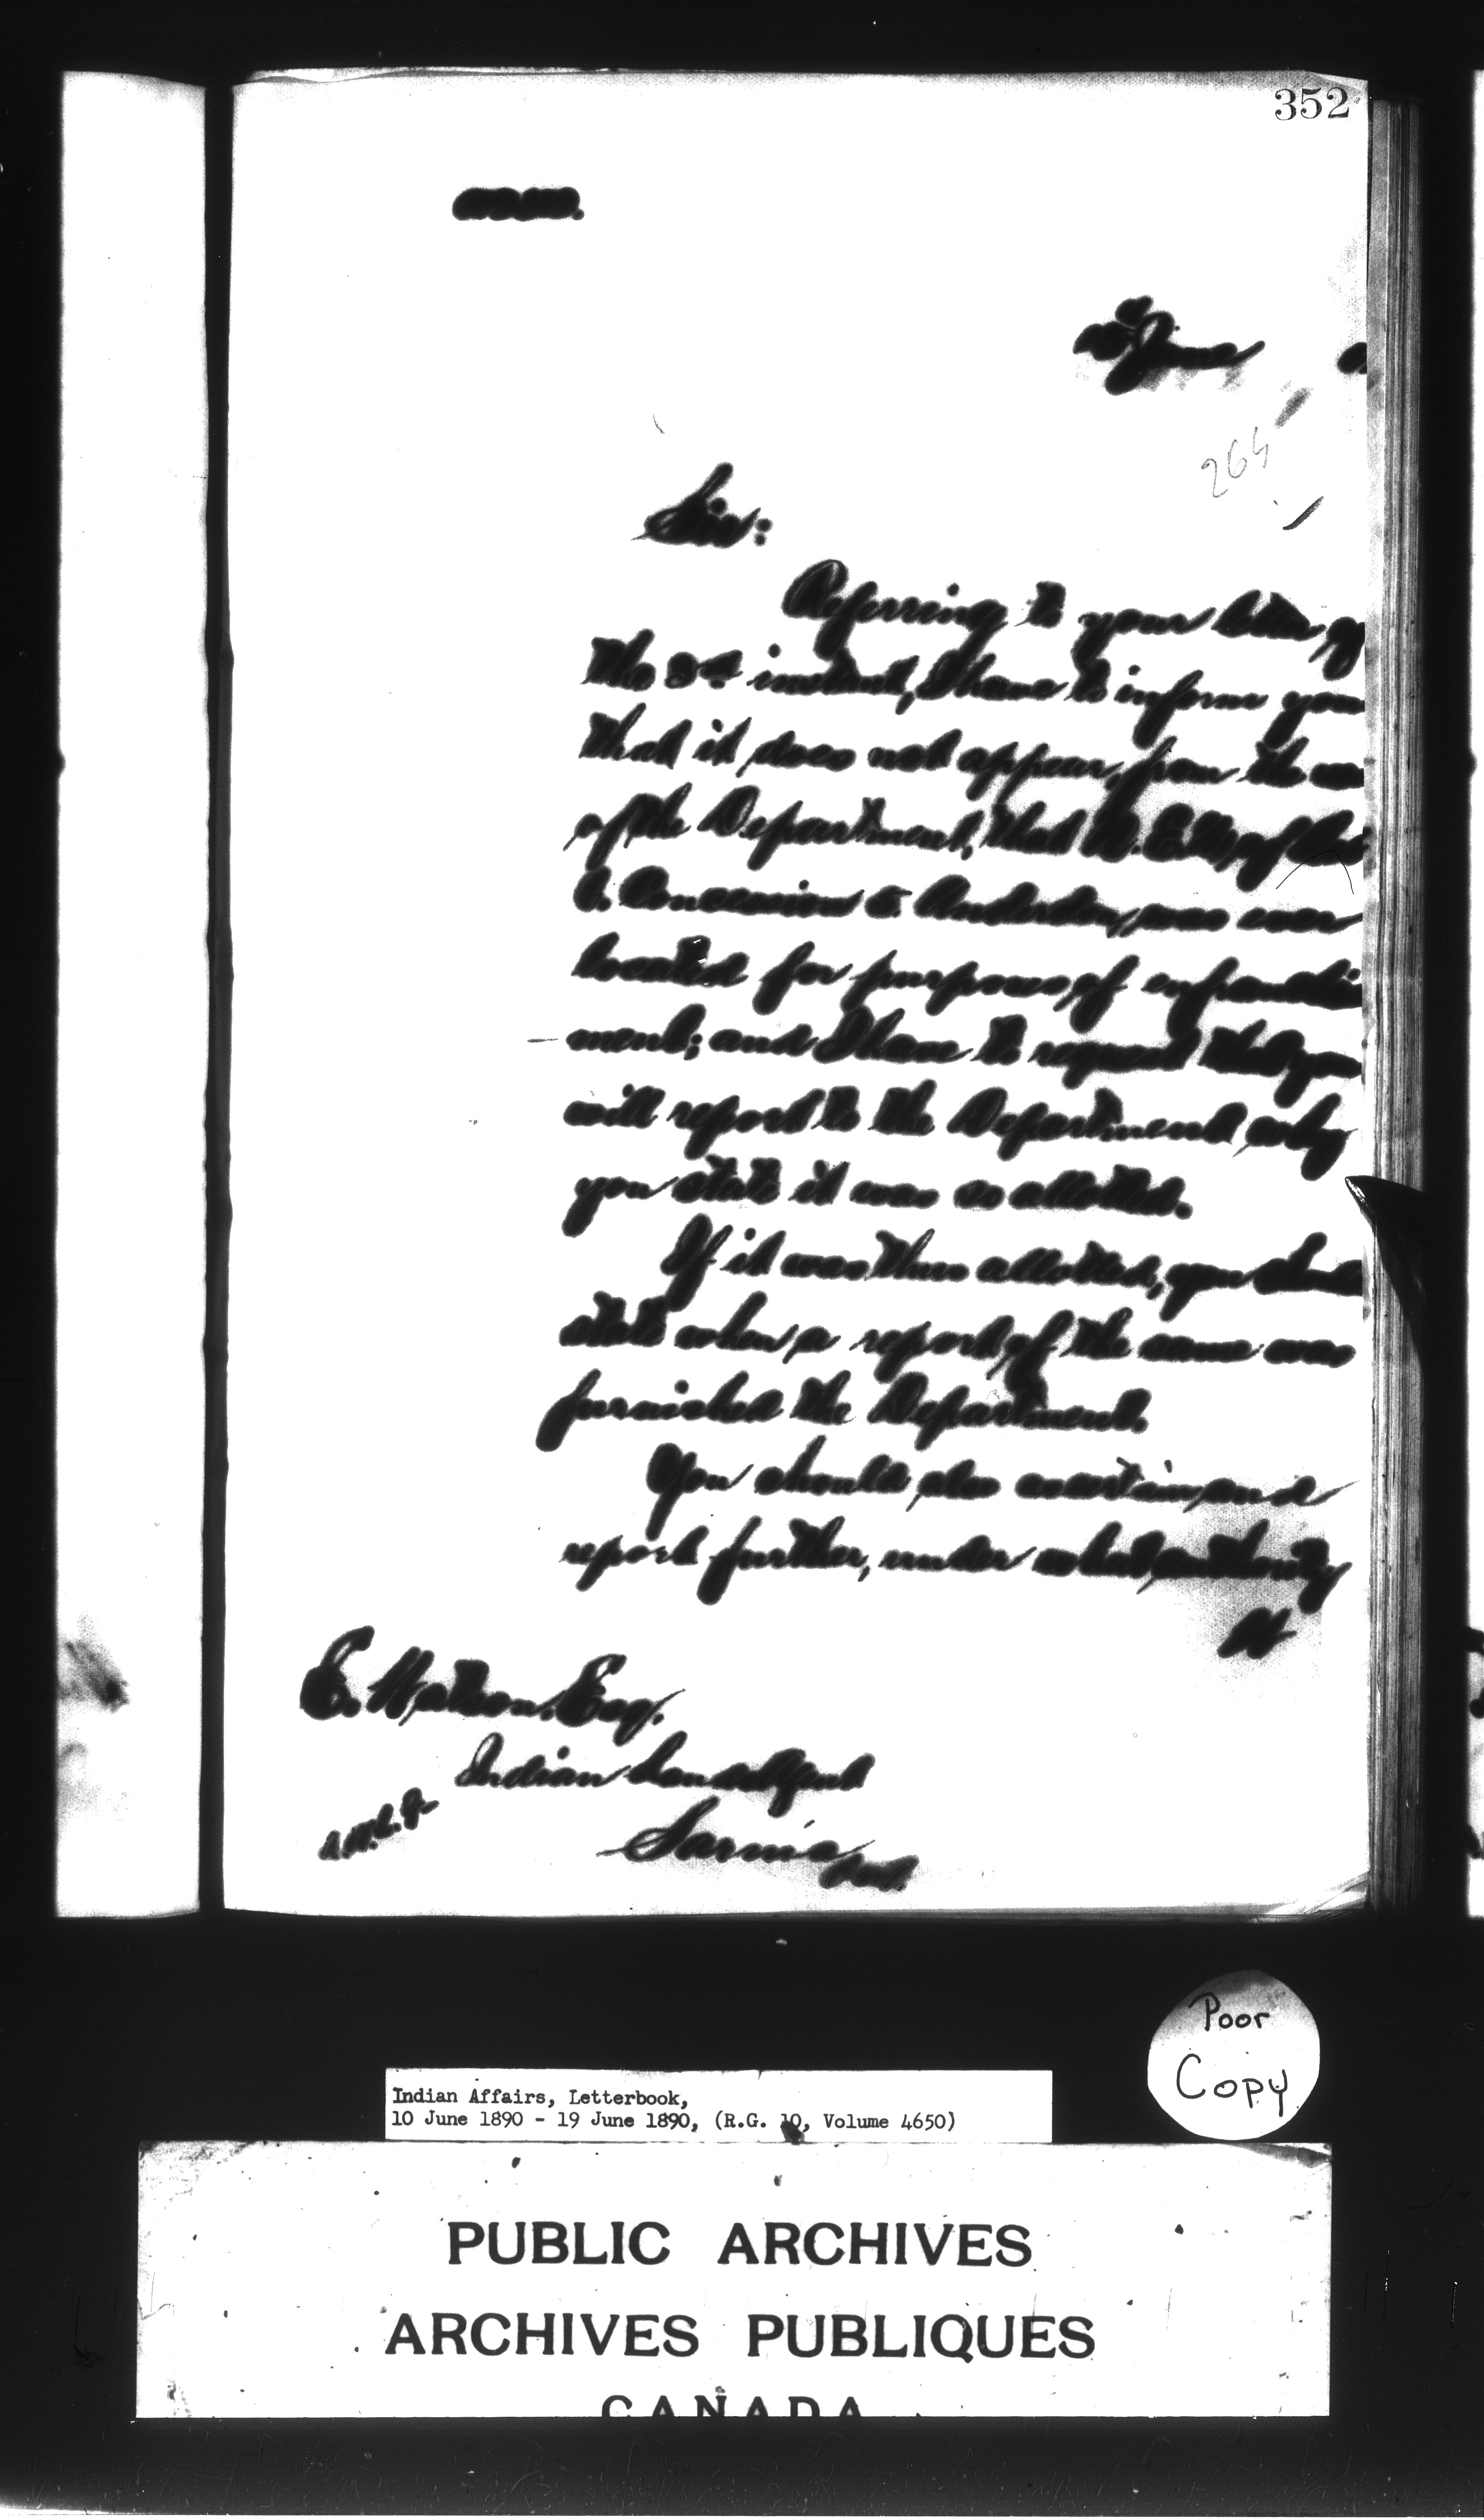 352
June
264
Sir:
Referring to your letter of
the 3rd instant, I have to inform you
that it does not appear, from the
of the Department, that N. E. ¼, of Lot
Concession 5. Anderdon, was ever
located for purposes of enfranchise
ment; and I have to request that you
will report to the Department why
you state it was so allotted.
If it was thus allotted, you should
state when a report of the same was
furnished the Department.
You should also ascertain and
report further, under what authority
E. Watson. Esq.
Indian Land Agent
Sarnia
Ont.
Poor
Copy
Indian Affairs, Letterbook,
10 June 1890 - 19 June 1890, (R.G. 10, Volume 4650)
PUBLIC ARCHIVES
ARCHIVES PUBLIQUES
CANADA